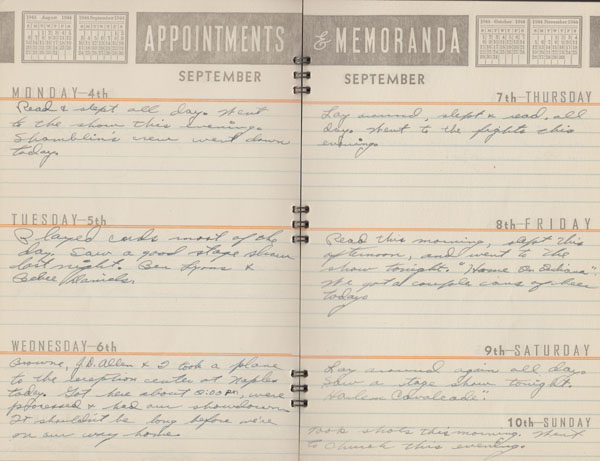 1944 August 1944
1944 September 1944
APPOINTMENTS & MEMORANDA
1944 October 1944
1944 November 1944
SEPTEMBER
MONDAY—4th
Read & slept all day. Went
to the show this evening.
Shamblin's crew went down
today.
TUESDAY—5th
Played cards most of the
day. Saw a good stage show
last night. Ben Lyons &
Bebe Daniels.
WEDNESDAY—6th
Browne, J.D. Allen & I took a plane
to the reception center at Naples
today. Got here about 2:00 P.M., were
processed & had our showdown.
It shouldn't be long before we're
on our way home.
SEPTEMBER
7th—THURSDAY
Lay around, slept & read, all
day. Went to the fights this
evening.
8th—FRIDAY
Read this morning, slept this
afternoon, and went to the
show tonight. "Home In Indiana".
We got a couple cans of beer
today.
9th—SATURDAY
Lay around again all day.
Saw a stage show tonight.
Harlem Cavalcade"
10th—SUNDAY
Took shots this morning. Went
to Church this evening.